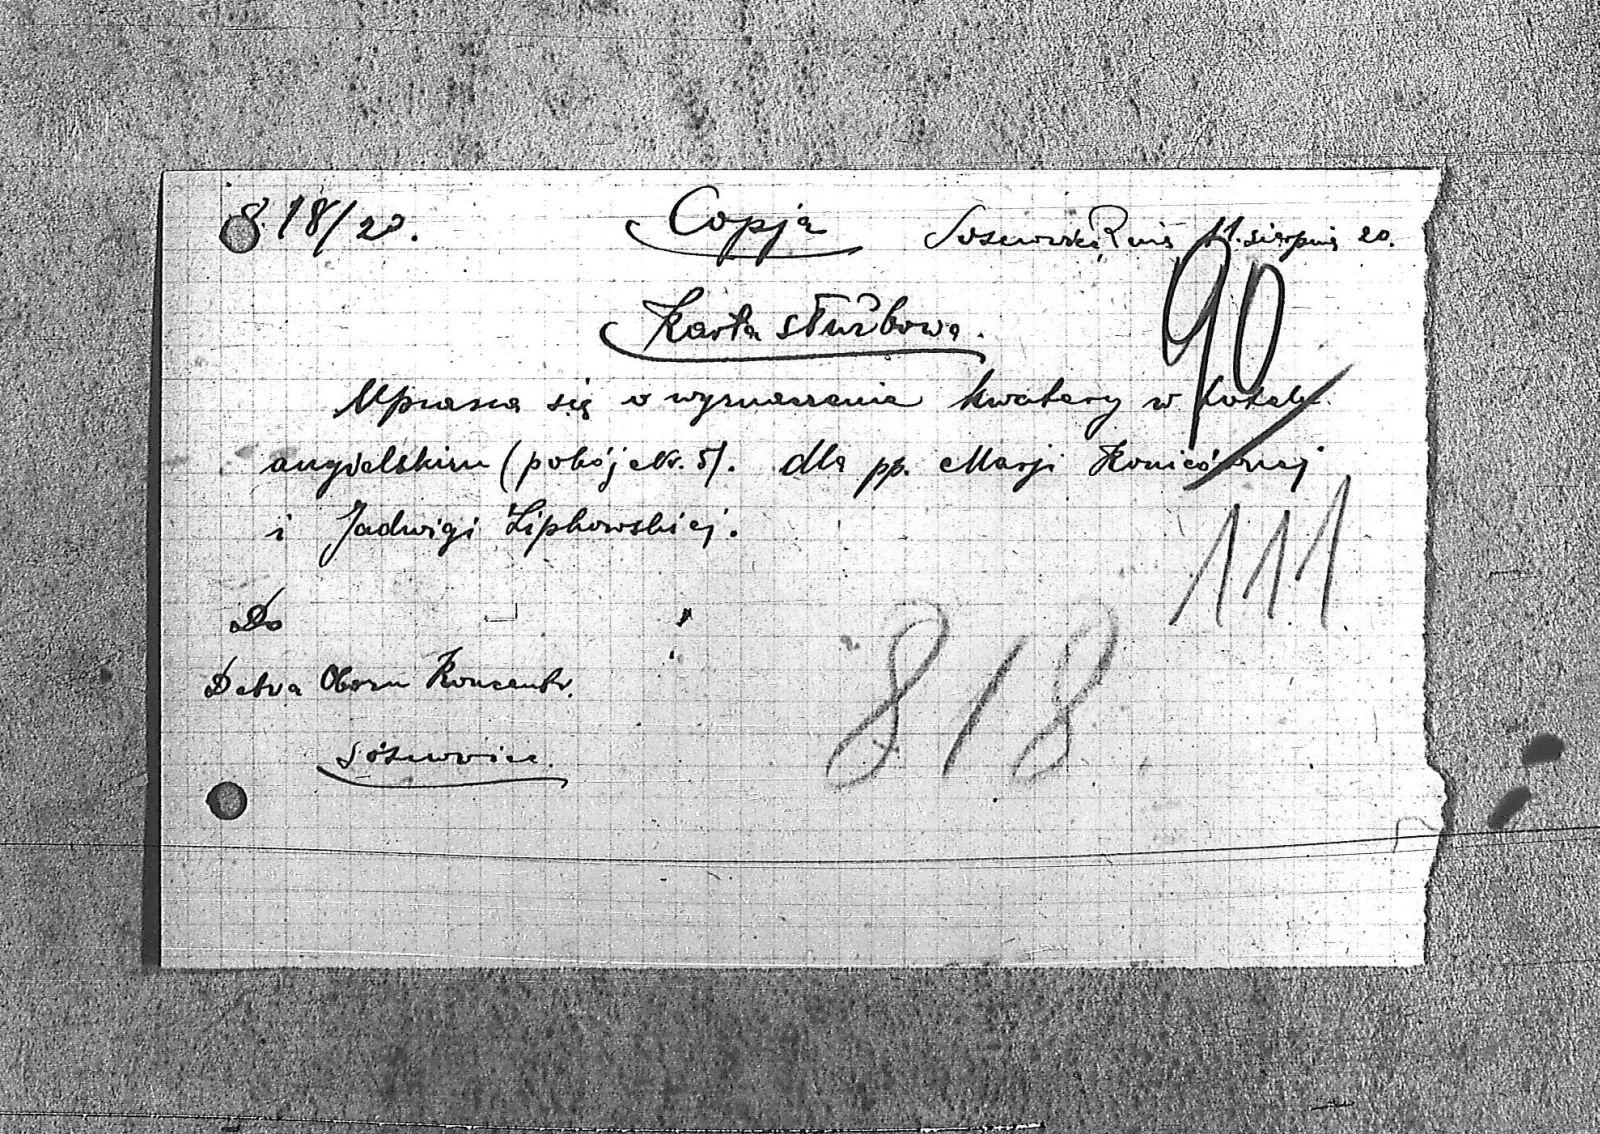 818/20. Copja Sosnowice dnia 11. sierpnia 20.
90
Karta służbowa.
Uprasza się o wyznaczenie kwatery w hotelu
angielskim (pokój Nr. 5). dla pp. Marji
i Jadwigi Lipkowskiej.
111
Do
818
Dctwa Obozu Koncentr.
Sosnowice.